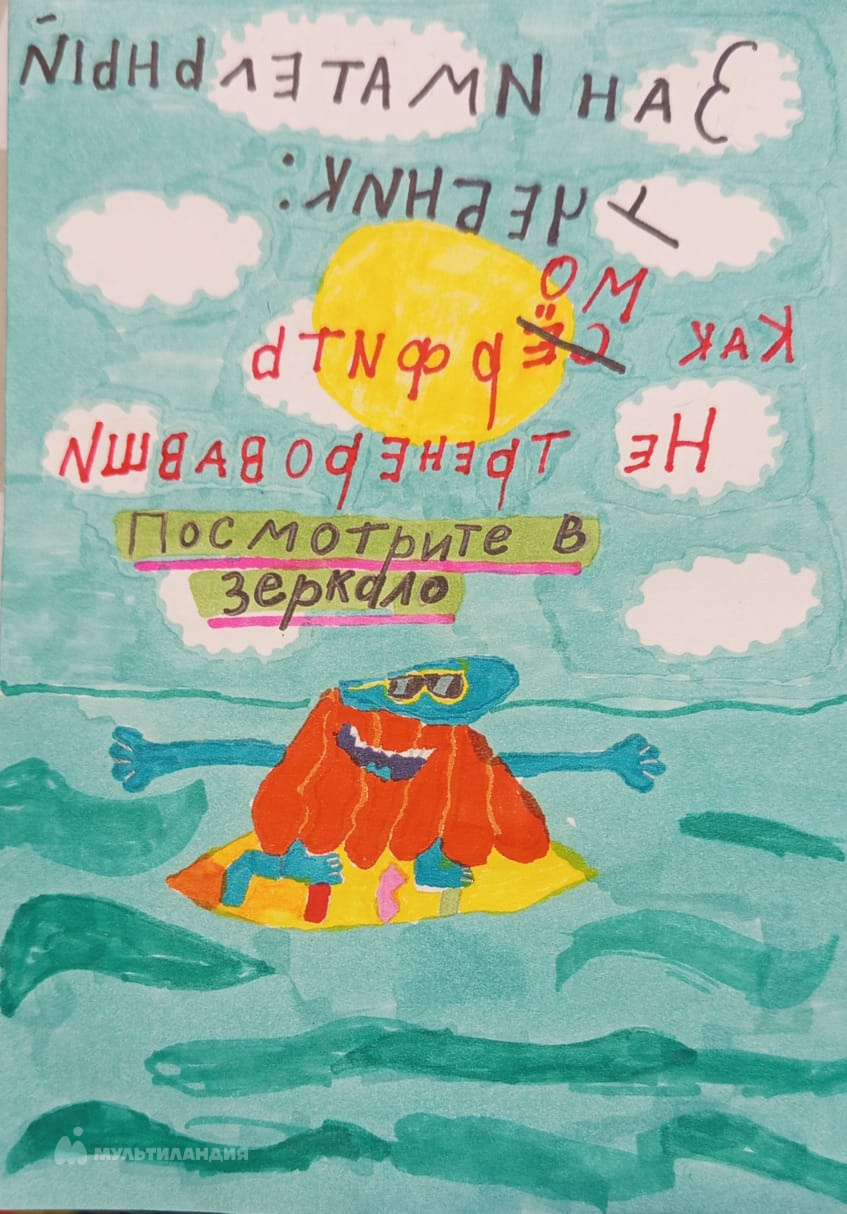 ЗАНИМАТЕЛЬНЫЙ
УЧЕБНИК:
МО
КАК СЁРФИТЬ
НЕ ТРЕНЕРОВАВШИ
Посмотрите в
зеркало
МУЛЬТИЛАНДИЯ